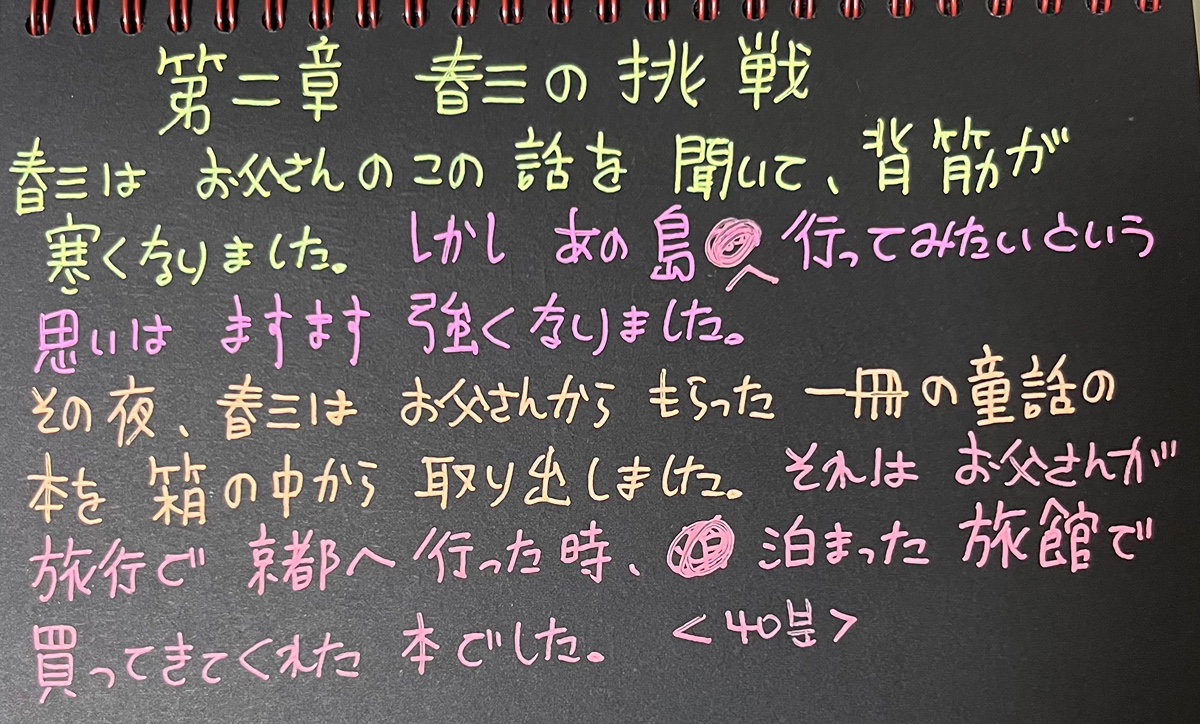 第二章 春三の挑戦
春三は お父さんのこの 話を 聞いて、背筋が
寒くなりました。 しかし あの 島へ 行ってみたいという
思いは ますます 強くなりました。
その夜、春三は お父さんから もらった 一冊の童話の
本を 箱の中から 取り出しました。それは お父さんが
旅行で 京都へ 行った時、泊まった 旅館で
買ってきてくれた 本でした。 <40분>